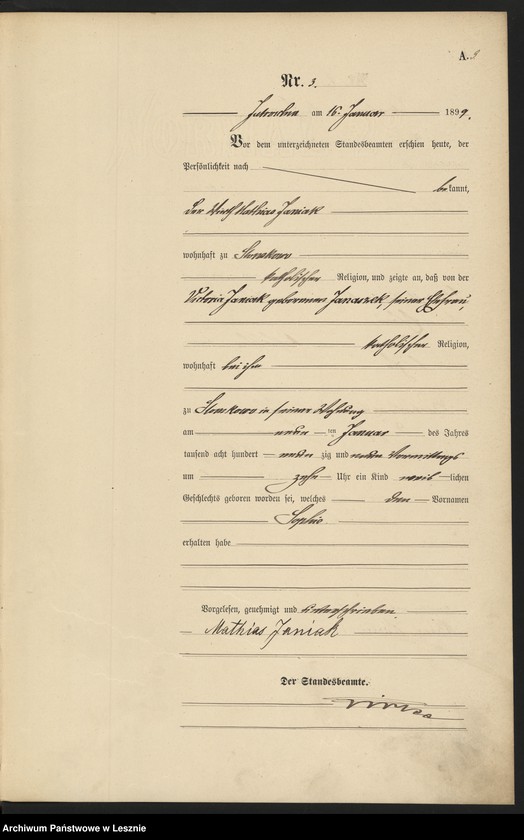 A. 3
Nr. 3.
Jutroschin am 16. Januar 1899.
Vor dem unterzeichneten Standesbeamten erschien heute, der
Persönlichkeit nach
bekannt,
der Wirth Mathias Janiak
wohnhaft zu
katholischer Religion, und zeigte an, daß von der
Victoria Janiak geborenen Janaszek, seiner Ehefrau,
katholischer Religion,
wohnhaft bei ihm
zu in seiner Wohnung
am neunten Januar des Jahres
tausend acht hundert neunzig und neun Vormittags
um zehn Uhr ein Kind weiblichen
Geschlechts geboren worden sei, welches den Vornamen
Sophie
erhalten habe
Vorgelesen, genehmigt und unterschrieben
Mathias Janiak
Der Standesbeamte.
Archiwum Państwowe w Lesznie